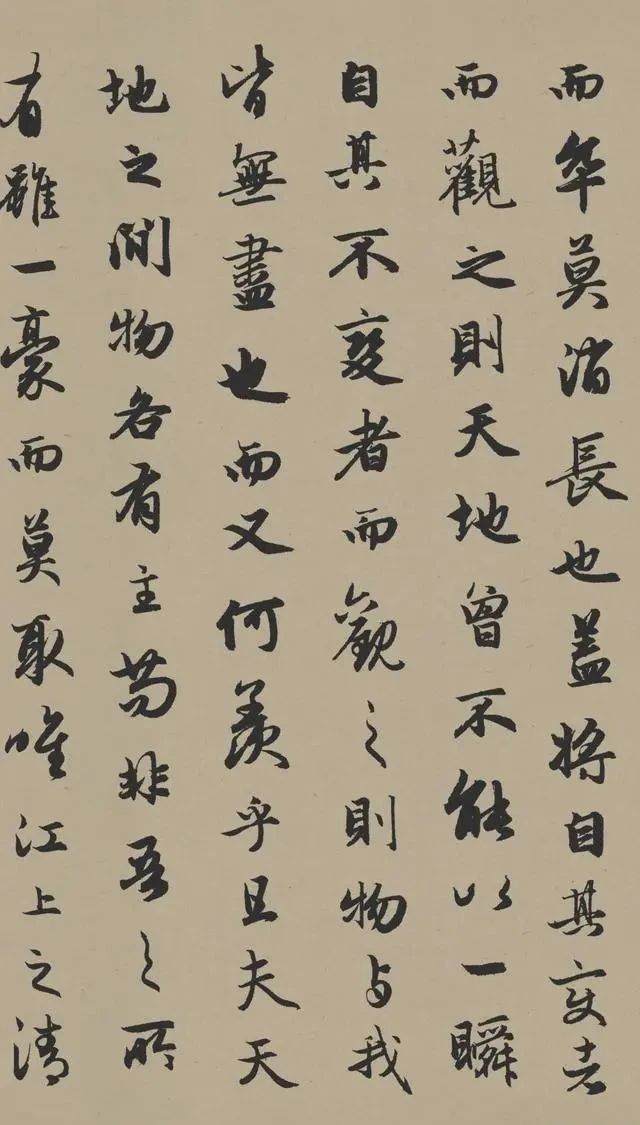 而卒莫消長也蓋將自其變者
而觀之則天地曾不能以一瞬
自其不變者而觀之則物與我
皆無盡也而又何羨乎且夫天
地之間物各有主苟非吾之所
有雖一豪而莫取唯江上之清